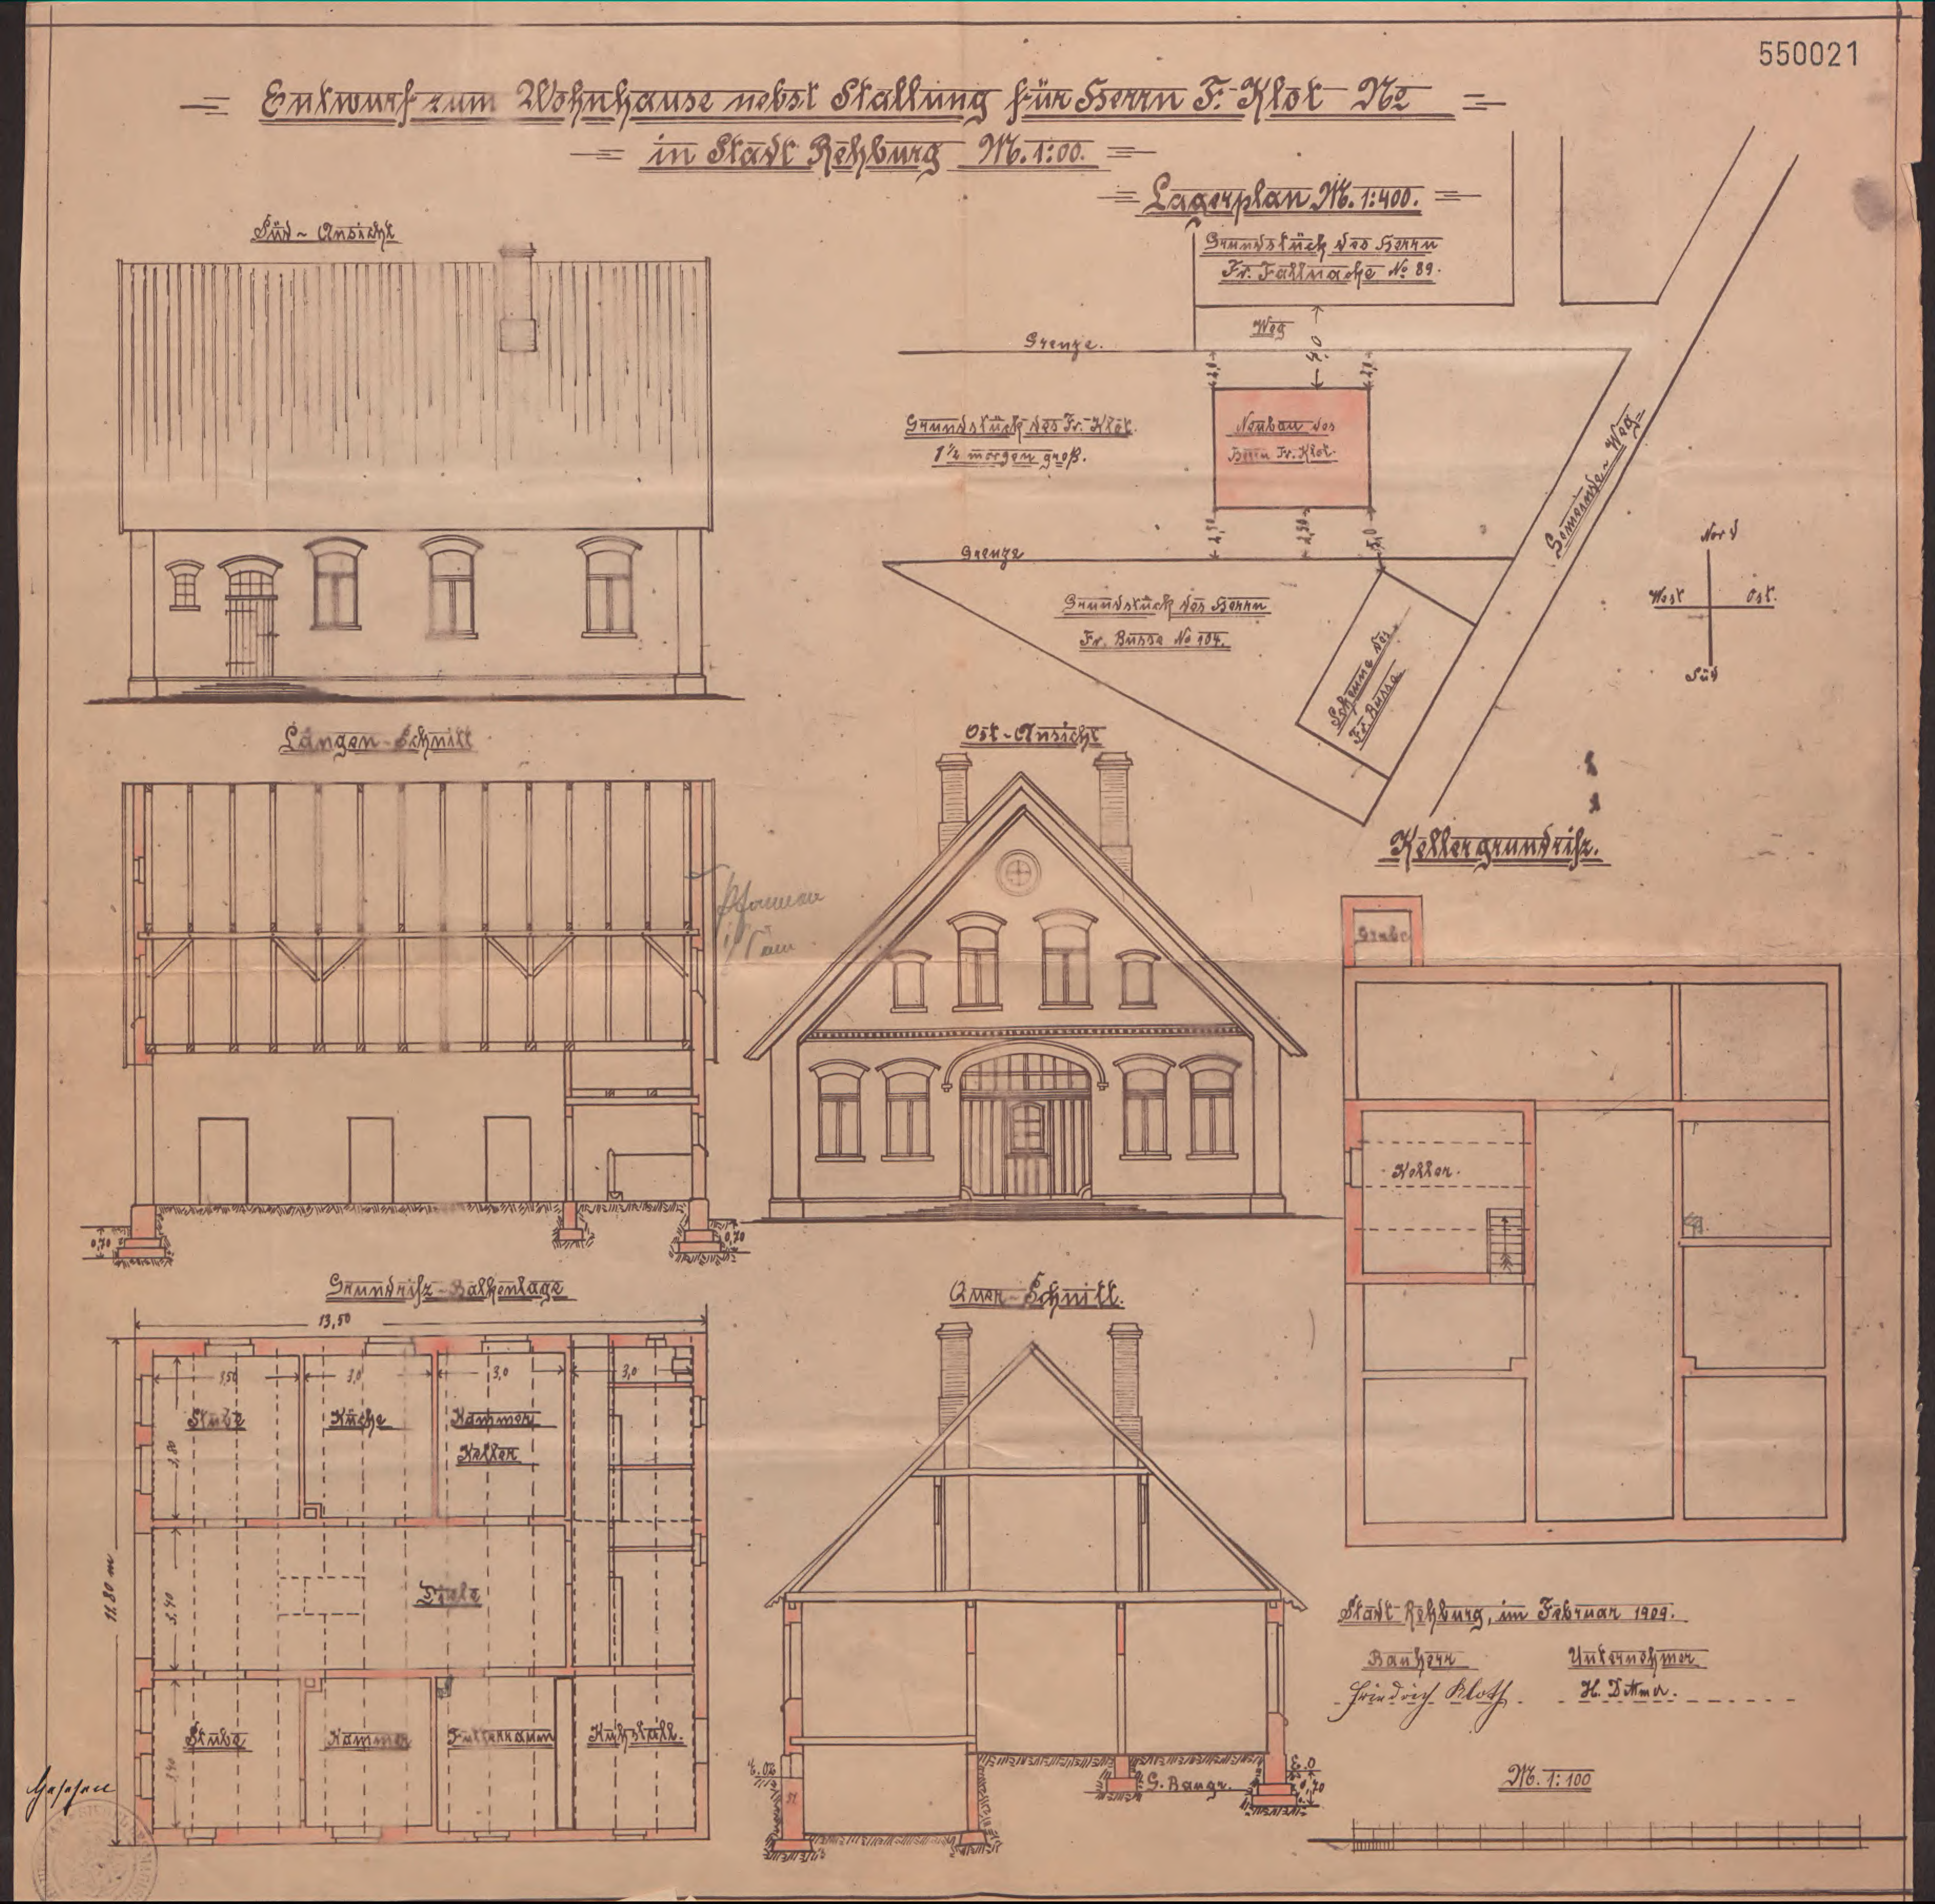 550021
Entwurf zum Wohnhause nebst Stallung für Herrn F. Klot No
in Stadt Rehburg M. 1:00.
Lageplan M. 1:400.
Grundstück des Herrn
Fr. Fallnacke No 89.
Weg
4,0
Grenze.
2,0
2,0
Grundstück des Fr. Klot.
1 1/2 morgen groß.
Neubau des
Herrn Fr. Klot.
2,50
2,50
Grenze
Grundstück des Herrn
Fr. Busse No 104.
Scheune des
Fr. Busse
Weg
Nord
West
Ost.
Süd
Süd-Ansicht
Längen-Schnitt
0,70
0,70
Ost-Ansicht
Kellergrundriß.
Grube
Keller.
Grundriß-Balkenlage
13,50
11,80 m
3,50
3,0
3,0
3,0
Stube
Küche
Kammer
Keller
3,80
Diele
3,40
Stube
Kammer
Futterraum
Kuhstall.
Quer-Schnitt.
G. Baugr.
0,70
Stadt Rehburg, im Februar 1909.
Bauherr
Unternehmer
Friedrich Kloth.
H. Dittmer.
M. 1:100